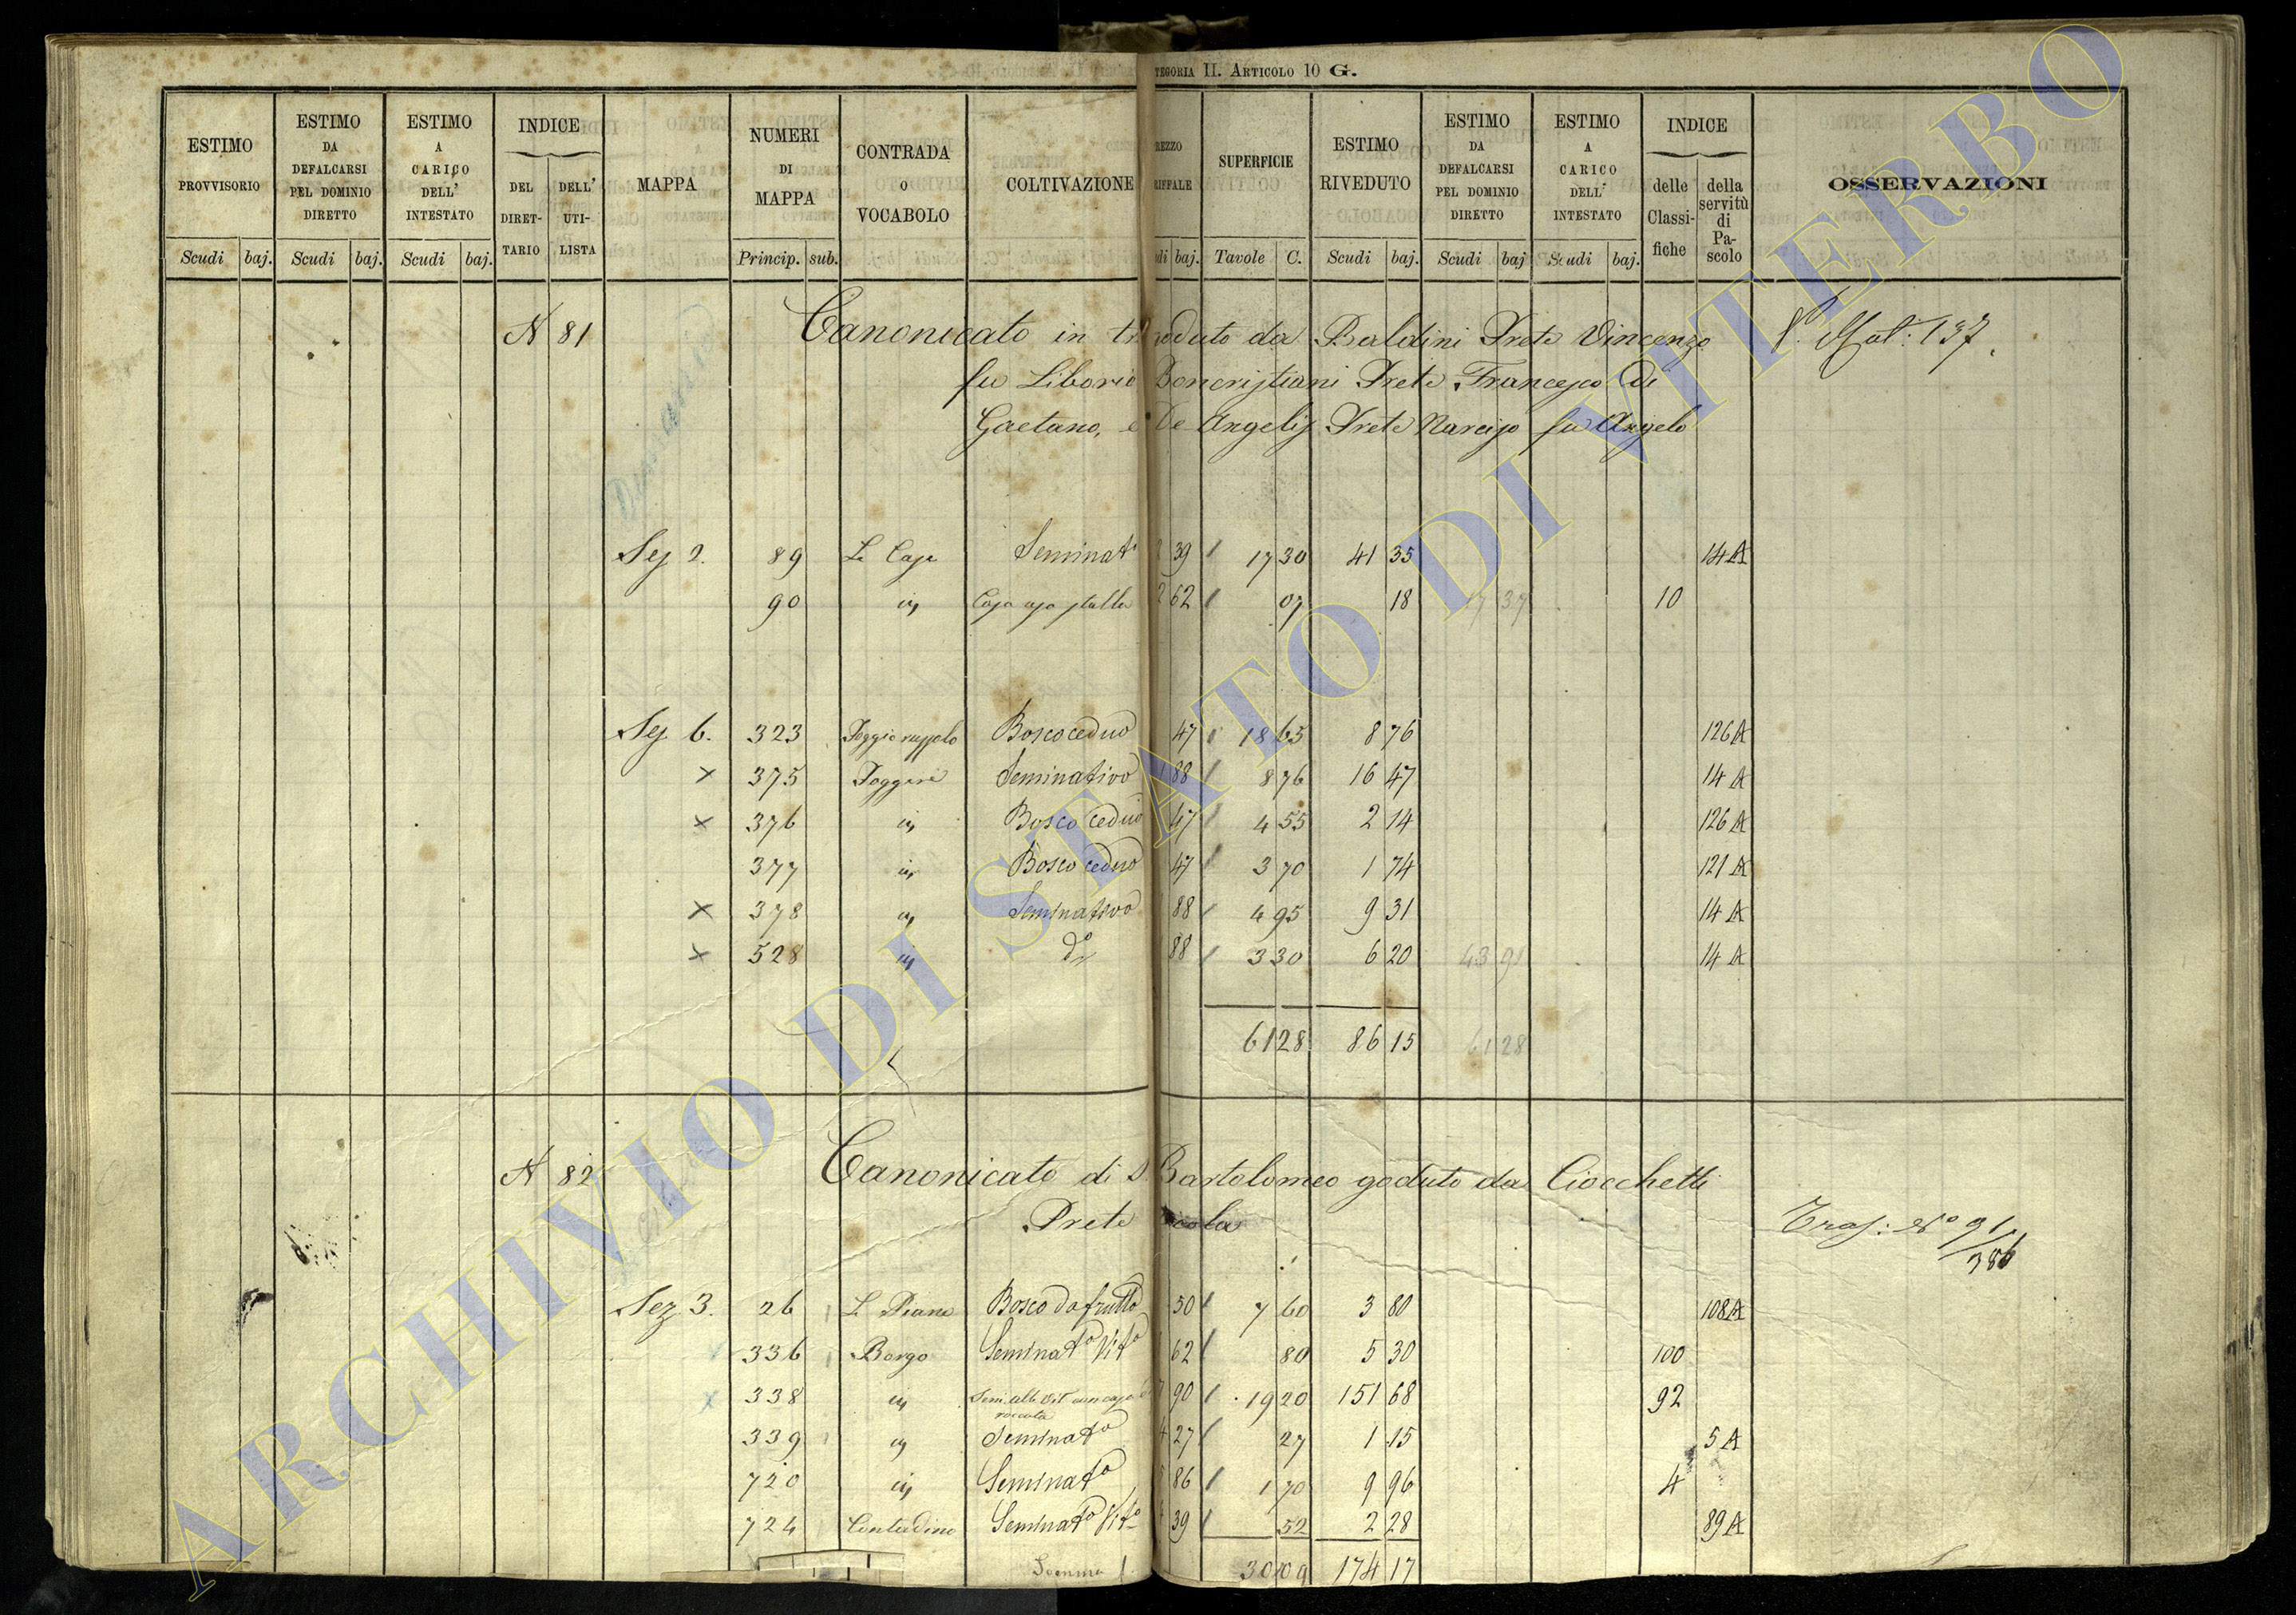 TEGORIA II. ARTICOLO 10 G.
ESTIMO PROVVISORIO Scudi baj.
ESTIMO DA DEFALCARSI PEL DOMINIO DIRETTO Scudi baj.
ESTIMO A CARICO DELL' INTESTATO Scudi baj.
INDICE DEL DIRETTARIO DELL' UTILISTA
MAPPA
NUMERI DI MAPPA Princip. sub.
CONTRADA O VOCABOLO
COLTIVAZIONE
REZZO RIFFALE di baj.
SUPERFICIE Tavole C.
ESTIMO RIVEDUTO Scudi baj.
ESTIMO DA DEFALCARSI PEL DOMINIO DIRETTO Scudi baj
ESTIMO A CARICO DELL' INTESTATO Scudi baj.
INDICE delle Classifiche della servitù di Pascolo
OSSERVAZIONI
N 81 Canonicato in goduto da Baldini Prete Vincenzo Mat: 137
fu Liborio Boncristiani Prete Francesco di
Gaetano, e De Angelis Prete Narciso fu Angelo
Sez 2. 89 Le Case Seminat° 39 17 30 41 35 14 A
90 in Casa uso stalla 2 62 07 18 17 37 10
Sez 6. 323 Bosco ceduo 47 18 65 8 76 126 A
x 375 Poggere Seminativo 1 88 8 76 16 47 14 A
x 376 in Bosco ceduo 47 4 55 2 14 126 A
377 in Bosco ceduo 47 3 70 1 74 121 A
x 378 in Seminativo 88 4 95 9 31 14 A
x 528 in d° 88 3 30 6 20 43 91 14 A
61 28 86 15 61 28
N 82 Canonicato di S. Bartolomeo goduto da Ciocchetti
Prete Nicola
Tras: N° 91/386
Sez 3. 26 Le Piane Bosco da frutto 50 7 60 3 80 108 A
336 Borgo Seminat° Vit° 62 80 5 30 100
x 338 in 90 19 20 151 68 92
339 in Seminat° 4 27 27 1 15 5 A
720 in Seminat° 5 86 1 70 9 96 4
724 Contadino Seminat° Vit° 39 52 2 28 89 A
Somma 30 09 174 17
ARCHIVIO DI STATO DI VITERBO